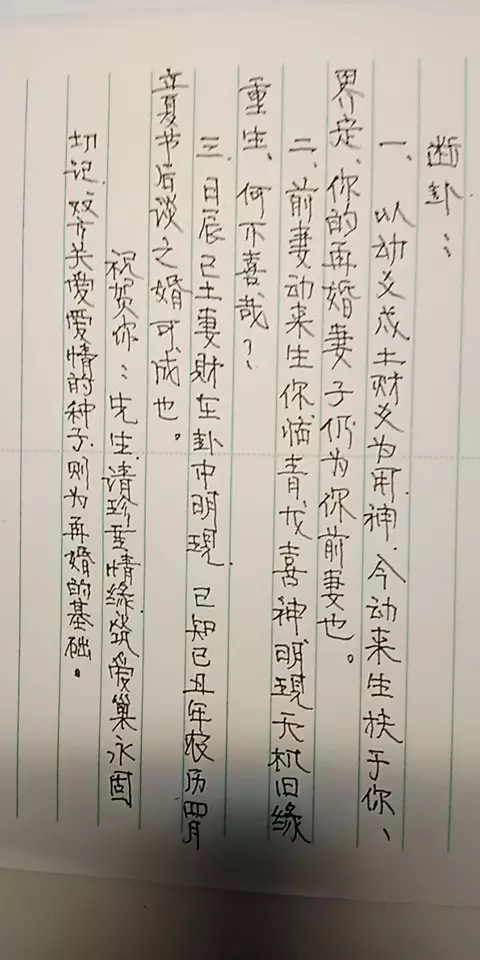 断卦：
一、以动爻戌土财爻为用神、今动来生扶于你、
界定、你的再婚妻子仍为你前妻也。
二、前妻动来生你临青龙喜神明现天机旧缘
重生、何不喜哉？
三、日辰已土妻财在卦中明现、已知已丑年农历四月
立夏节后谈之婚可成也。
祝贺你：先生、请珍重情缘、筑爱巢永固
切记、双方关爱爱情的种子、则为再婚的基础。